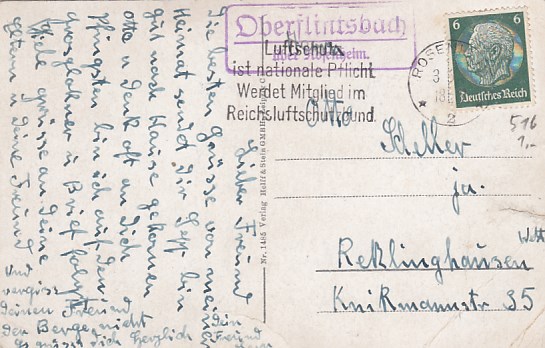 Oberflintsbach
über Rosenheim.
Luftschutz
ist nationale Pflicht
Werdet Mitglied im
Reichsluftschutzbund.
ROSEN
6 6
Deutsches Reich
516
1,-
Otto
Scheller
jr.
Reklinghausen
Knikmannstr 35
Nr. 1485 Verlag
Lieber Freund
Die besten Grüsse von meiner
Heimat sendet Dir Sepp bin
gut nach Hause gekommen
Otto Denk oft an dich
Pfingsten bin ich auf den
Grosglokner u Brief folgt
Viele grüsse an deine
Eltern u deine Freund
Und
vergiss
deinen Freund
den Berge nicht
Es grüsst dich herzlich
Dein
Freund